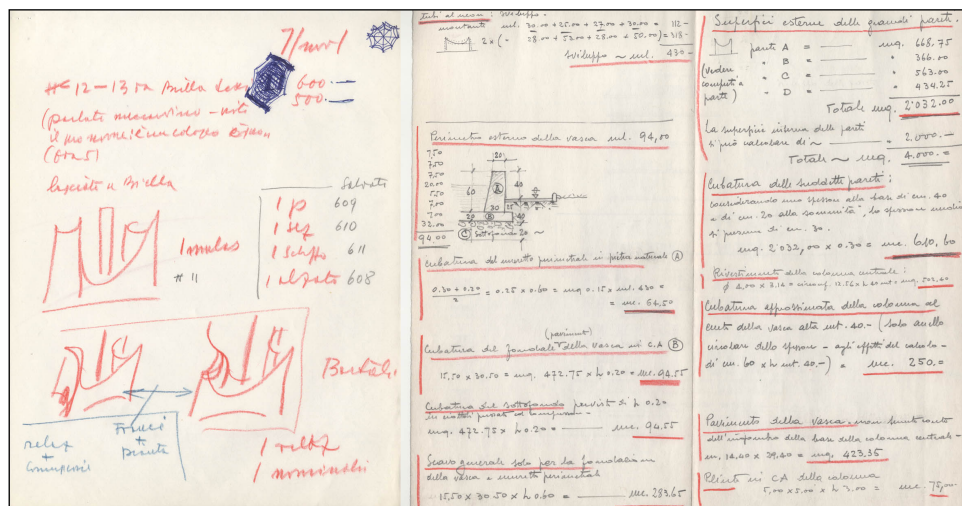 7/nov/
600.—
500.—
(ore 5)
lasciati a Biella
Salvati
1 p 609
1 sez 610
611
608
# 11
relax
+
1 relax
tubi al neon : sviluppo.
montanti ml. 30.00 + 25.00 + 27.00 + 30.00 = 112-
2 x ( = 28.00 + 53.00 + 28.00 + 50.00 ) = 318-
sviluppo ~ ml. 430-
Perimetro esterno della vasca ml. 94,00
7,50
7,50
7,50
20.00
5.50
7.00
7.00
32.00
94.00
20
60
40
A
30
15
20
B
40
C Sottofondo 20 ~
Cubatura del muretto perimetrale in pietra naturale A
0.30 + 0.20 / 2 = 0.25 x 0.60 = mq 0.15 x ml. 430 =
= mc. 64,50
(pavimento)
Cubatura del fondale della vasca in C.A B
15,50 x 30.50 = mq. 472.75 x h 0.20 = mc. 94.55
Cubatura del sottofondo previsto di h 0.20
mq. 472.75 x h 0.20 = mc. 94,55
Scavo generale solo per la fondazione
della vasca e muretti perimetrali
15,50 x 30.50 x h 0.60 = mc. 283.65
Superfici esterne delle grandi pareti.
parete A = mq. 668,75
" B = " 366.00
" C = " 563.00
" D = " 434.25
(vedere
computi a
parte)
Totale mq. 2'032.00
La superficie interna delle pareti
si può calcolare di ~ " 2.000.—
Totale ~ mq. 4.000.=
Cubatura delle suddette pareti :
considerando uno spessore alla base di cm. 40
e di cm. 20 alla sommità, lo spessore medio
si presume di cm. 30.
mq. 2'032,00 x 0.30 = mc. 610,60
Rivestimento della colonna centrale :
ø 4,00 x 3.14 = circonf. 12.56 x h 40 mt = mq. 502.40
Cubatura approssimata della colonna al
centro della vasca alta mt. 40.- (solo anello
circolare dello spessore - agli effetti del calcolo -
di cm. 60 x h mt. 40,-) = mc. 250.=
Pavimento della vasca - non tenuto conto
dell'ingombro della base della colonna centrale -
m. 14,40 x 29,40 = mq. 423,35
Plinto in C.A della colonna
5,00 x 5.00 x h 3.00 = mc. 75,00-